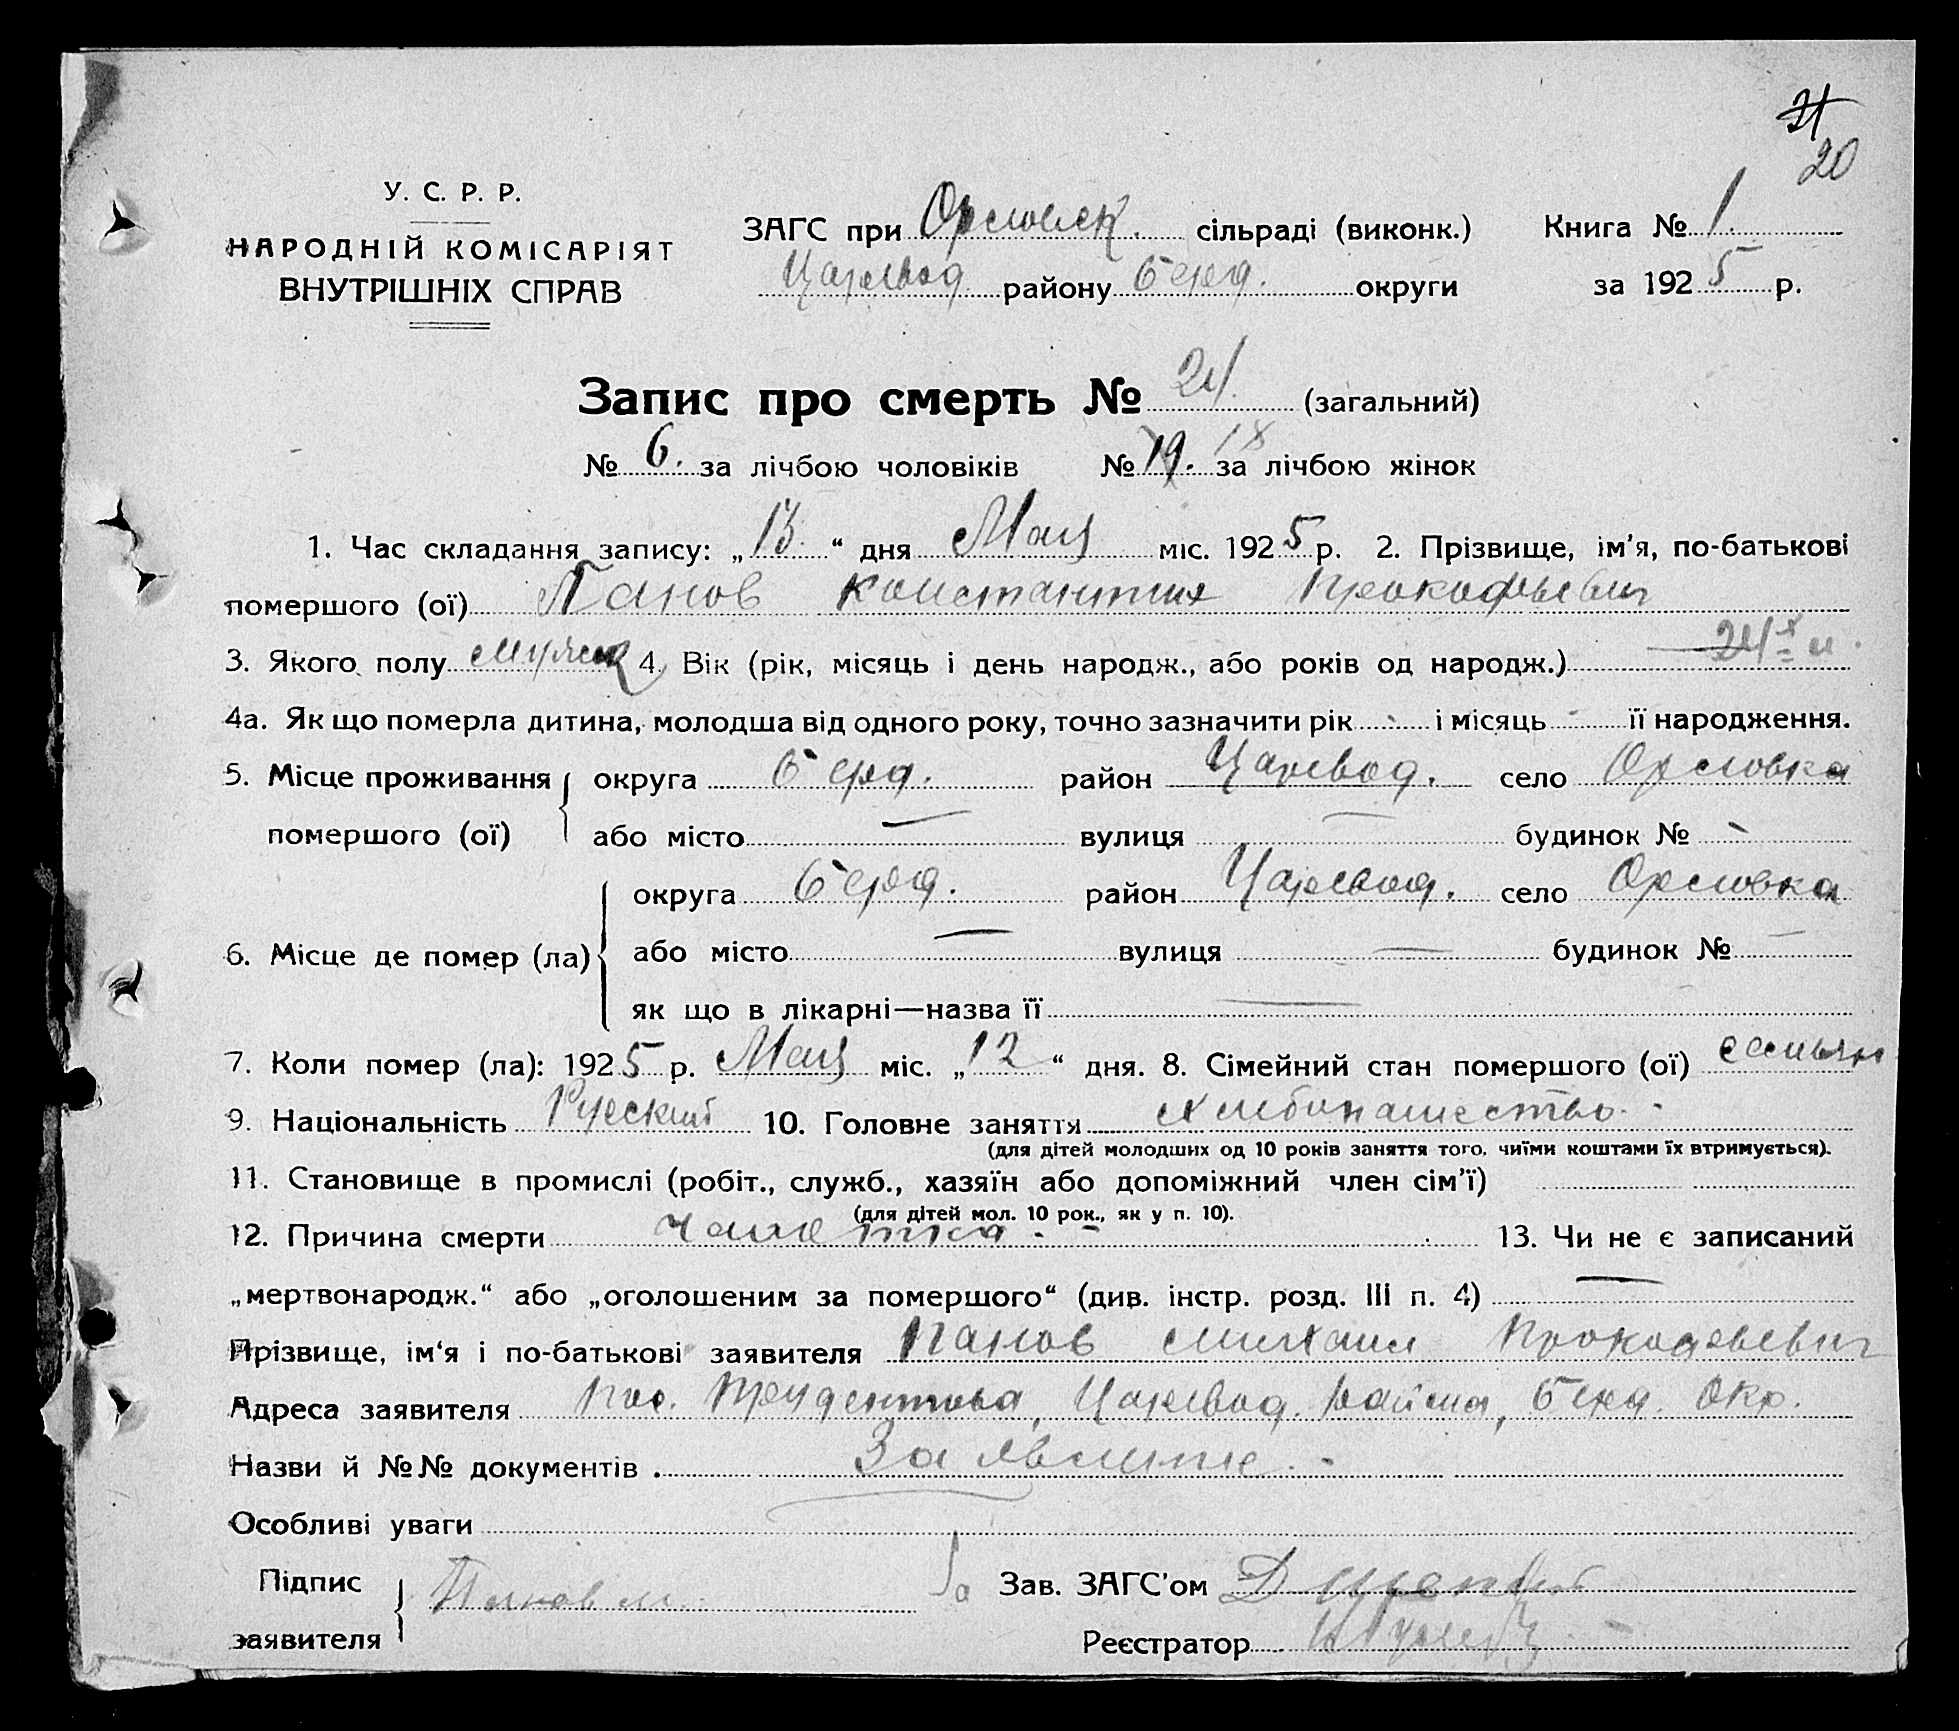 21
20
У. С. Р. Р.
НАРОДНІЙ КОМІСАРІЯТ
ВНУТРІШНІХ СПРАВ
ЗАГС при Орловск. сільраді (виконк.) Книга № 1.
Царевод району Берд. округи за 1925 р.
Запис про смерть № 24. (загальний)
№ 6. за лічбою чоловіків № 19. 18 за лічбою жінок
1. Час складання запису: „13.“ дня Мая міс. 1925 р. 2. Прізвище, ім'я, по-батькові
помершого (ої) Панов Константин Прокофьевич
3. Якого полу мужск 4. Вік (рік, місяць і день народж., або років од народж.) 24
4а. Як що померла дитина, молодша від одного року, точно зазначити рік - і місяць - її народження.
5. Місце проживання округа Берд. район Царевод. село Орловка
помершого (ої) або місто — вулиця — будинок № -
округа Берд. район Царевод. село Орловка
6. Місце де помер (ла) або місто — вулиця — будинок № —
як що в лікарні—назва її —
7. Коли помер (ла): 1925 р. Мая міс. „12“ дня. 8. Сімейний стан помершого (ої)
9. Національність Русский 10. Головне заняття хлебопашество.
(для дітей молодших од 10 років заняття того, чиїми коштами їх втримується).
11. Становище в промислі (робіт., служб., хазяїн або допоміжний член сім'ї)
(для дітей мол. 10 рок., як у п. 10).
12. Причина смерти чахотка. - 13. Чи не є записаний
„мертвонародж.“ або „оголошеним за помершого“ (див. інстр. розд. III п. 4) —
Прізвище, ім'я і по-батькові заявителя Панов Михаил Прокофьевич
Адреса заявителя пос. Царевод. района, Берд. Окр.
Назви й №№ документів . Заявление. -
Особливі уваги
Підпис Панов М. За Зав. ЗАГС'ом
заявителя Реєстратор